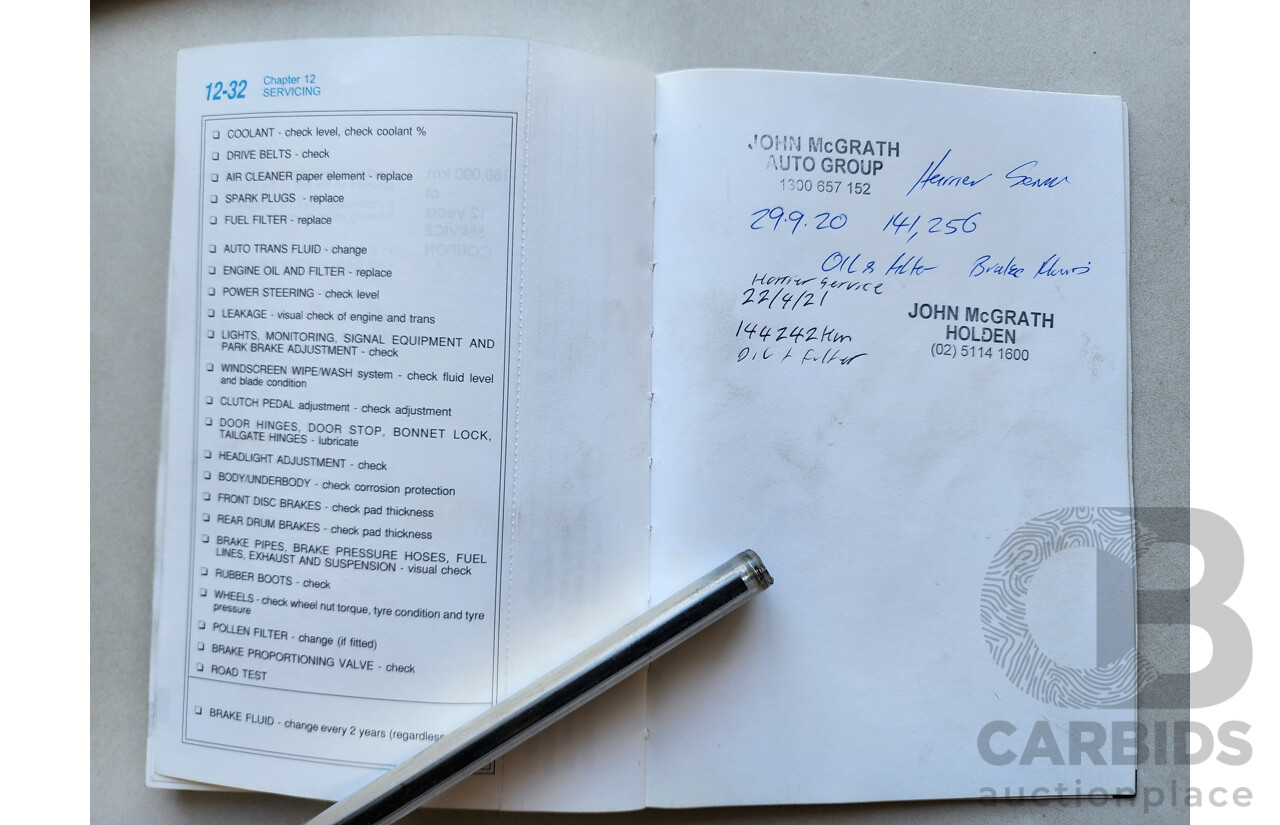 12-32
Chapter 12
SERVICING
❑ COOLANT - check level, check coolant %
❑ DRIVE BELTS - check
❑ AIR CLEANER paper element - replace
❑ SPARK PLUGS - replace
❑ FUEL FILTER - replace
❑ AUTO TRANS FLUID - change
❑ ENGINE OIL AND FILTER - replace
❑ POWER STEERING - check level
❑ LEAKAGE - visual check of engine and trans
❑ LIGHTS, MONITORING, SIGNAL EQUIPMENT AND
PARK BRAKE ADJUSTMENT - check
❑ WINDSCREEN WIPE/WASH system - check fluid level
and blade condition
❑ CLUTCH PEDAL adjustment - check adjustment
❑ DOOR HINGES, DOOR STOP, BONNET LOCK,
TAILGATE HINGES - lubricate
❑ HEADLIGHT ADJUSTMENT - check
❑ BODY/UNDERBODY - check corrosion protection
❑ FRONT DISC BRAKES - check pad thickness
❑ REAR DRUM BRAKES - check pad thickness
❑ BRAKE PIPES, BRAKE PRESSURE HOSES, FUEL
LINES, EXHAUST AND SUSPENSION - visual check
❑ RUBBER BOOTS - check
❑ WHEELS - check wheel nut torque, tyre condition and tyre
pressure
❑ POLLEN FILTER - change (if fitted)
❑ BRAKE PROPORTIONING VALVE - check
❑ ROAD TEST
❑ BRAKE FLUID - change every 2 years (regardless
JOHN McGRATH
AUTO GROUP
1300 657 152
29.9.20 141,256
Oil & filter Brake
Service
22/4/21
144242km
Oil + Filter
JOHN McGRATH
HOLDEN
(02) 5114 1600
CARBIDS
auctionplace